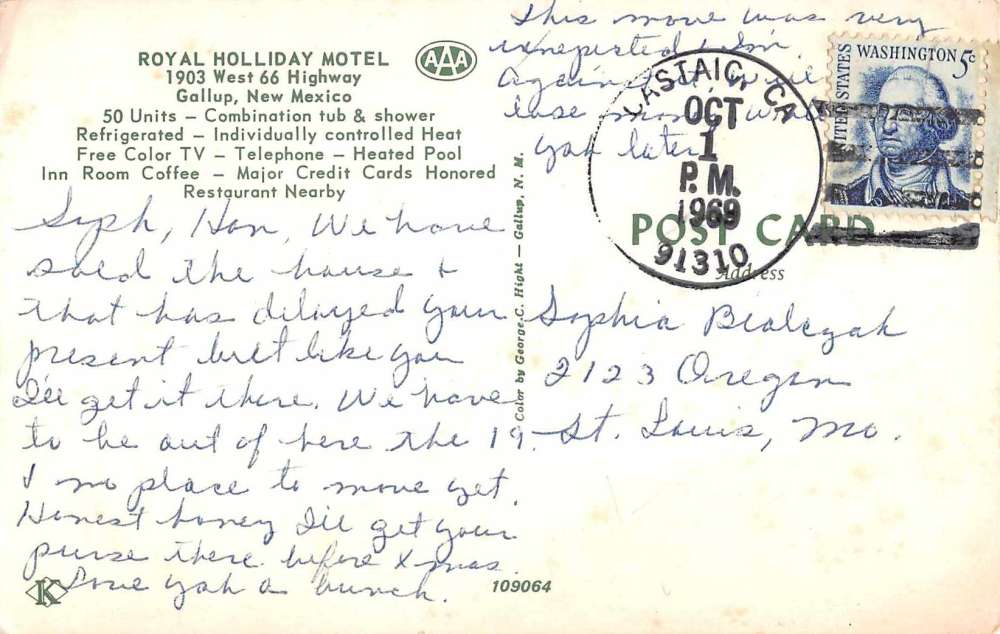 ROYAL HOLLIDAY MOTEL
1903 West 66 Highway
Gallup, New Mexico
50 Units — Combination tub & shower
Refrigerated — Individually controlled Heat
Free Color TV — Telephone — Heated Pool
Inn Room Coffee — Major Credit Cards Honored
Restaurant Nearby
AAA
This move was very
unexpected & I'm
against it. will
lose money. write
yah later
UNITED STATES
WASHINGTON 5c
CASTAIC, CA
OCT
1
P.M.
1969
91310
POST CARD
Address
Soph, Hon, We have
sold the house &
that has dilayed your
present but like you
I'll get it there. We have
to be out of here the 19.
& no place to move yet.
Honest honey I'll get your
purse there before Xmas.
Love yah a bunch.
K
Color by George C. Hight — Gallup, N. M.
109064
Sophia Bialczak
2123 Oregon
St. Louis, Mo.